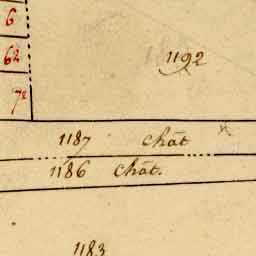 6
6²
1192
7²
1187 chāt
1186 chāt.
1183